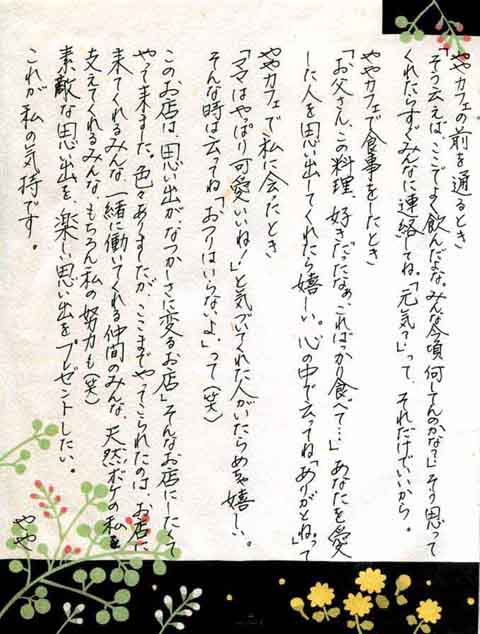 ややカフェの前を通るとき
「そう云えば、ここでよく飲んだよな。みんな今頃何してんのかな？」そう思って
くれたらすぐみんなに連絡してね。「元気？」って、それだけでいいから。
ややカフェで食事をしたとき
「お父さん、この料理、好きだったなぁ。こればっかり食べて…」あなたを愛
した人を思い出してくれたら嬉しい。心の中で云ってね「ありがとね。」って
ややカフェで私に会ったとき
「ママはやっぱり可愛いいね！」と気づいてくれた人がいたらめちゃ嬉しい。
そんな時は云ってね「おつりはいらないよ」って（笑）
この、お店は、「思い出がなつかしさに変るお店」そんなお店にしたくて
やって来ました。色々ありましたが、ここまでやってこられたのは、お店に
来てくれるみんな、一緒に働いてくれる仲間のみんな、天然ボケの私を
支えてくれるみんな、もちろん私の努力も（笑）
素敵な思い出を、楽しい思い出をプレゼントしたい。
これが私の気持です。
やや